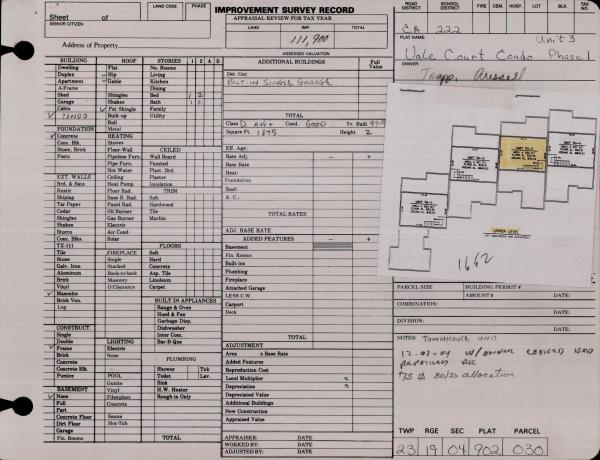 IMPROVEMENT SURVEY RECORD
Sheet of
SENIOR CITIZEN
LAND CODE
PHASE
APPRAISAL REVIEW FOR TAX YEAR
LAND IMP. TOTAL
111,900
ASSESSED VALUATION
Address of Property
ROAD DISTRICT
SCHOOL DISTRICT
FIRE
CEM.
HOSP.
LOT
BLK.
TAX NO.
222
PLAT NAME
Unit 3
Vale Court Condo Phase 1
OWNER
BUILDING
Dwelling
Duplex
Apartment
A-Frame
Shed
Garage
Cabin
CONDO
FOUNDATION
Concrete
Conc. Blk.
Stone, Brick
Posts
EXT. WALLS
Brd. & Bats
Rustic
Shiplap
Tar Paper
Cedar
Shingles
Shakes
Stucco
Conc. Blks
TX-111
Tile
Stone
Galv. Iron
Aluminum
Brick
Vinyl
Masonite
Brick Ven.
Log
CONSTRUCT.
Single
Double
Frame
Brick
Concrete
Concrete Blk.
Pumice
BASEMENT
None
Full
Part
Concrete Floor
Dirt Floor
Garage
Fin. Rooms
ROOF
Flat
Hip
Gable
Shingles
Shakes
Pat Shingle
Built-up
Roll
Metal
HEATING
Stoves
Floor-Wall
Pipeless Furn.
Pipe Furn.
Hot Water
Ceiling
Heat Pump
Floor Rad.
Base B. Rad.
Panel Rad.
Oil Burner
Gas Burner
Electric
Air Cond.
Solar
FIREPLACE
Single
Stacked
Back-to-back
Masonry
O'Clearance
LIGHTING
Electric
None
POOL
Gunite
Vinyl
Fiberglass
Concrete
Sauna
Hot-Tub
STORIES 1 2 A B
No. Rooms
Living
Kitchen
Dining
Bed 2
Bath 1 1
Family
Utility
CEILED
Wall Board
Paneled
Plast. Brd.
Plaster
Insulation
TRIM
Soft
Hardwood
Tile
Marble
FLOORS
Soft
Hard
Concrete
Asp. Tile
Linoleum
Carpet
BUILT IN APPLIANCES
Range & Oven
Hood & Fan
Garbage Disp.
Dishwasher
Inter Com.
Bar-B-Que
PLUMBING
Shower Tub
Toilet Lav.
Sink
H.W. Heater
Rough-in Only
TOTAL
ADDITIONAL BUILDINGS Full Value
Det. Gar.
BUILT-IN SINGLE GARAGE
TOTAL
Class D AVG + Cond. GOOD Yr. Built
Square Ft. 1875 Height 2
Eff. Age:
Rate Adj. – +
Base Rate
Heat:
Foundation
Roof:
A. C.
TOTAL RATES
ADJ. BASE RATE
ADDED FEATURES – +
Basement
Fin. Rooms
Built-ins
Plumbing
Fireplace
Attached Garage
LESS C.W.
Carport
Deck
TOTAL
ADJUSTMENT
Area x Base Rate
Added Features
Reproduction Cost
Local Multiplier %
Depreciation %
Depreciated Value
Additional Buildings
New Construction
Appraised Value
APPRAISER: DATE
WORKED BY: DATE
ADJUSTED BY: DATE
UPPER LEVEL
1662
PARCEL SIZE
BUILDING PERMIT #
AMOUNT $ DATE:
COMBINATION: DATE:
DIVISION: DATE:
NOTES: TOWNHOUSE UNIT
12-03-04 W/OWNER
80/20 allocation
TWP RGE SEC PLAT PARCEL
23 19 04 902 030